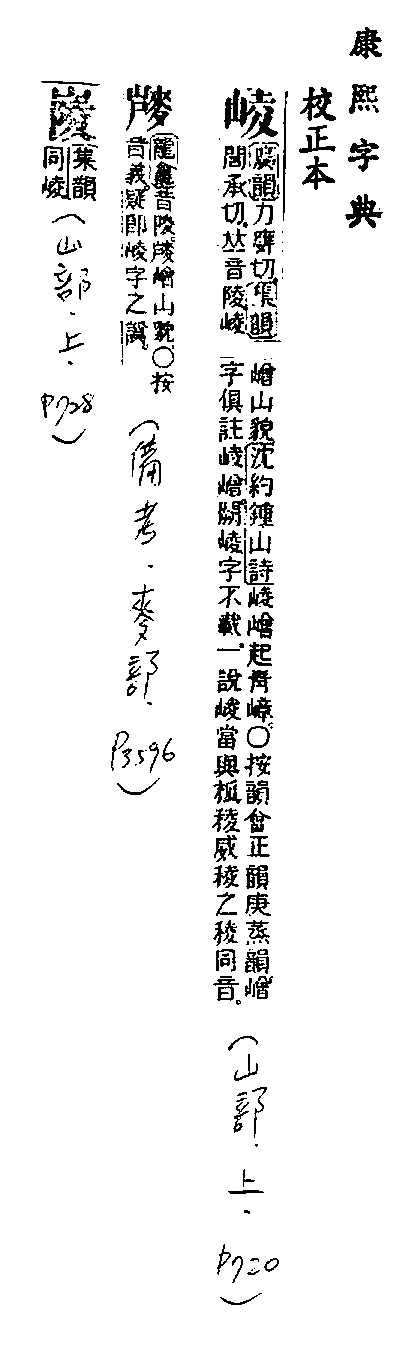 康熙字典
校正本
崚
廣韻力䔖切集韻
閭承切𠀤音陵崚
嶒山貌沈約鍾山詩崚嶒起靑嶂○按韻會正韻庚蒸韻嶒
字俱註崚嶒關崚字不載一說崚當與柧稜威稜之稜同音
(山部.上.P720)
龍龕音陵崚嶒山貌○按
音義疑卽崚字之譌
(備考.麥部.P3596)
集韻
同崚
(山部.上.P728)